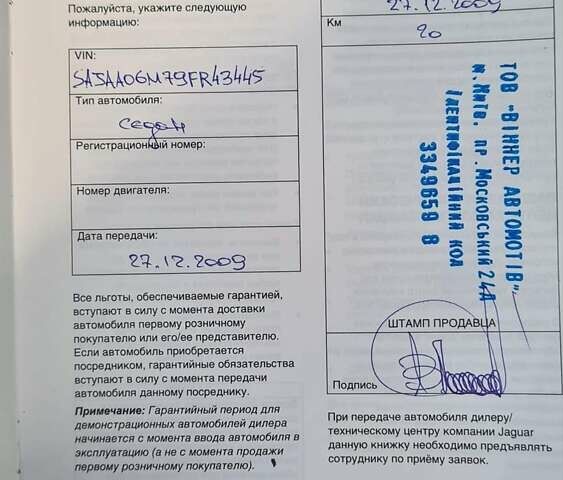 Пожалуйста, укажите следующую
информацию:
VIN:
SAJAA06M79FR43445
Тип автомобиля:
седан
Регистрационный номер:
Номер двигателя:
Дата передачи:
27.12.2009
Все льготы, обеспечиваемые гарантией,
вступают в силу с момента доставки
автомобиля первому розничному
покупателю или его/ее представителю.
Если автомобиль приобретается
посредником, гарантийные обязательства
вступают в силу с момента передачи
автомобиля данному посреднику.
Примечание: Гарантийный период для
демонстрационных автомобилей дилера
начинается с момента ввода автомобиля в
эксплуатацию (а не с момента продажи
первому розничному покупателю).
27.12.2009
Км
20
ТОВ "ВІННЕР АВТОМОТІВ",
м.Київ, пр.Московський 24Д
Ідентифікаційний код
3349659 8
ШТАМП ПРОДАВЦА
Подпись
При передаче автомобиля дилеру/
техническому центру компании Jaguar
данную книжку необходимо предъявлять
сотруднику по приёму заявок.